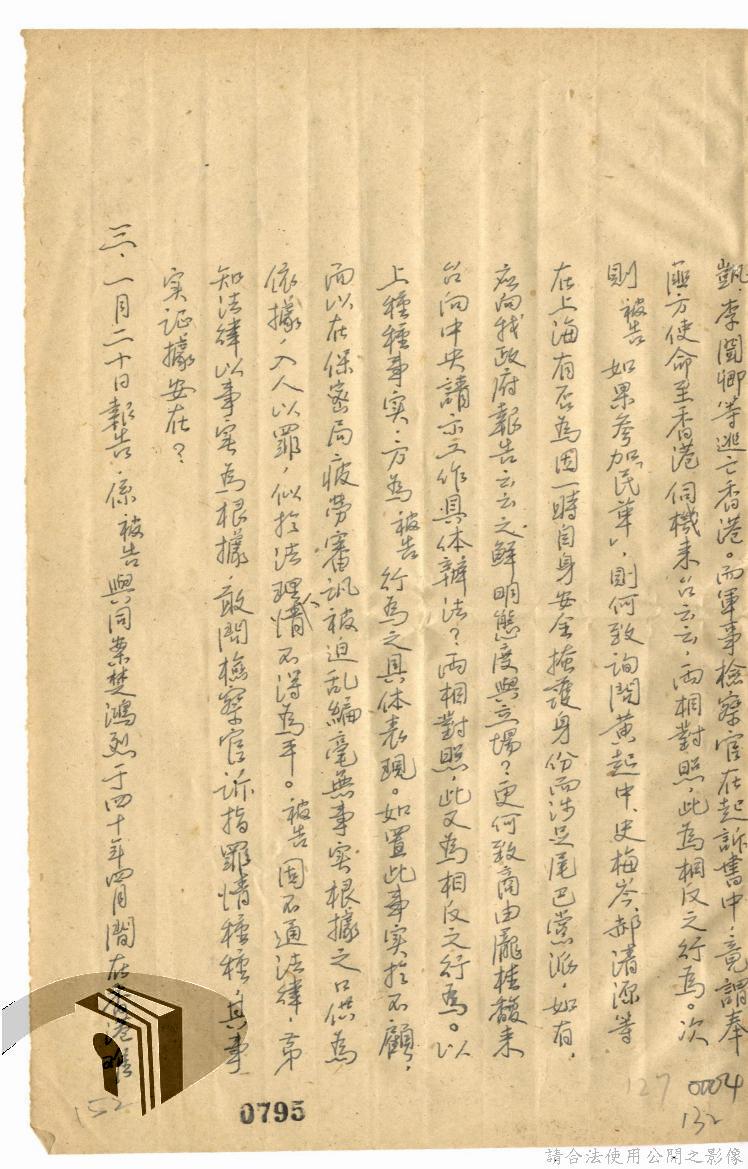 凱、李閏卿等逃亡香港。而軍事檢察官在起訴書中，竟謂奉
匪方使命至香港伺機来台云云，兩相對照，此為相反之行為。次
則被告如果參加「民革」，則何致詢問黃起中、史梅岑、郝清源等
在上海有否為因一時自身安全掩護身份而涉足尾巴党派，如有，
应向我政府報告云云之鮮明態度與立場？更何致商由龐桂馥来
台向中央請示工作具体辦法？兩相對照，此又為相反之行為。以
上種種事实，方為被告行為之具体表現。如置此事实於不顧，
而以在保密局疲劳審訊被迫乱編毫無事实根據之口供為
依據，入人以罪，似於法理人情不得為平。被告固不通法律，第
知法律以事实為根據，敢問檢察官訴指罪情種種，其事
实証據安在？
三、一月二十日報告，係被告與同案楚鴻烈于四十年四月間在香港
152
0795
127
0004
132
請合法使用公開之影像